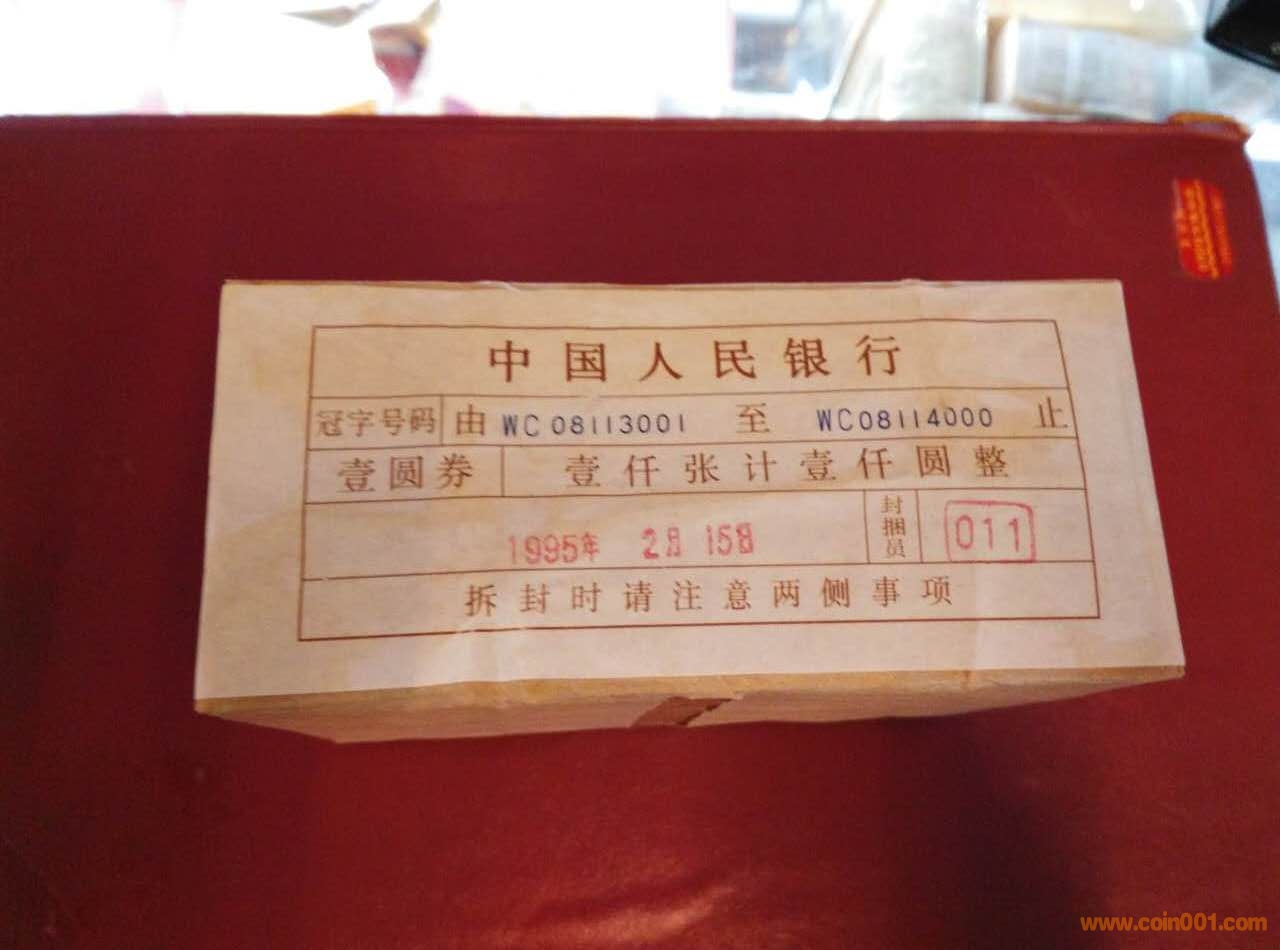 中国人民银行
冠字号码 由 WC 08113001 至 WC08114000 止
壹圆券 壹仟张计壹仟圆整
1995年 2月 15日 封捆员 011
拆封时请注意两侧事项
www.coin001.com